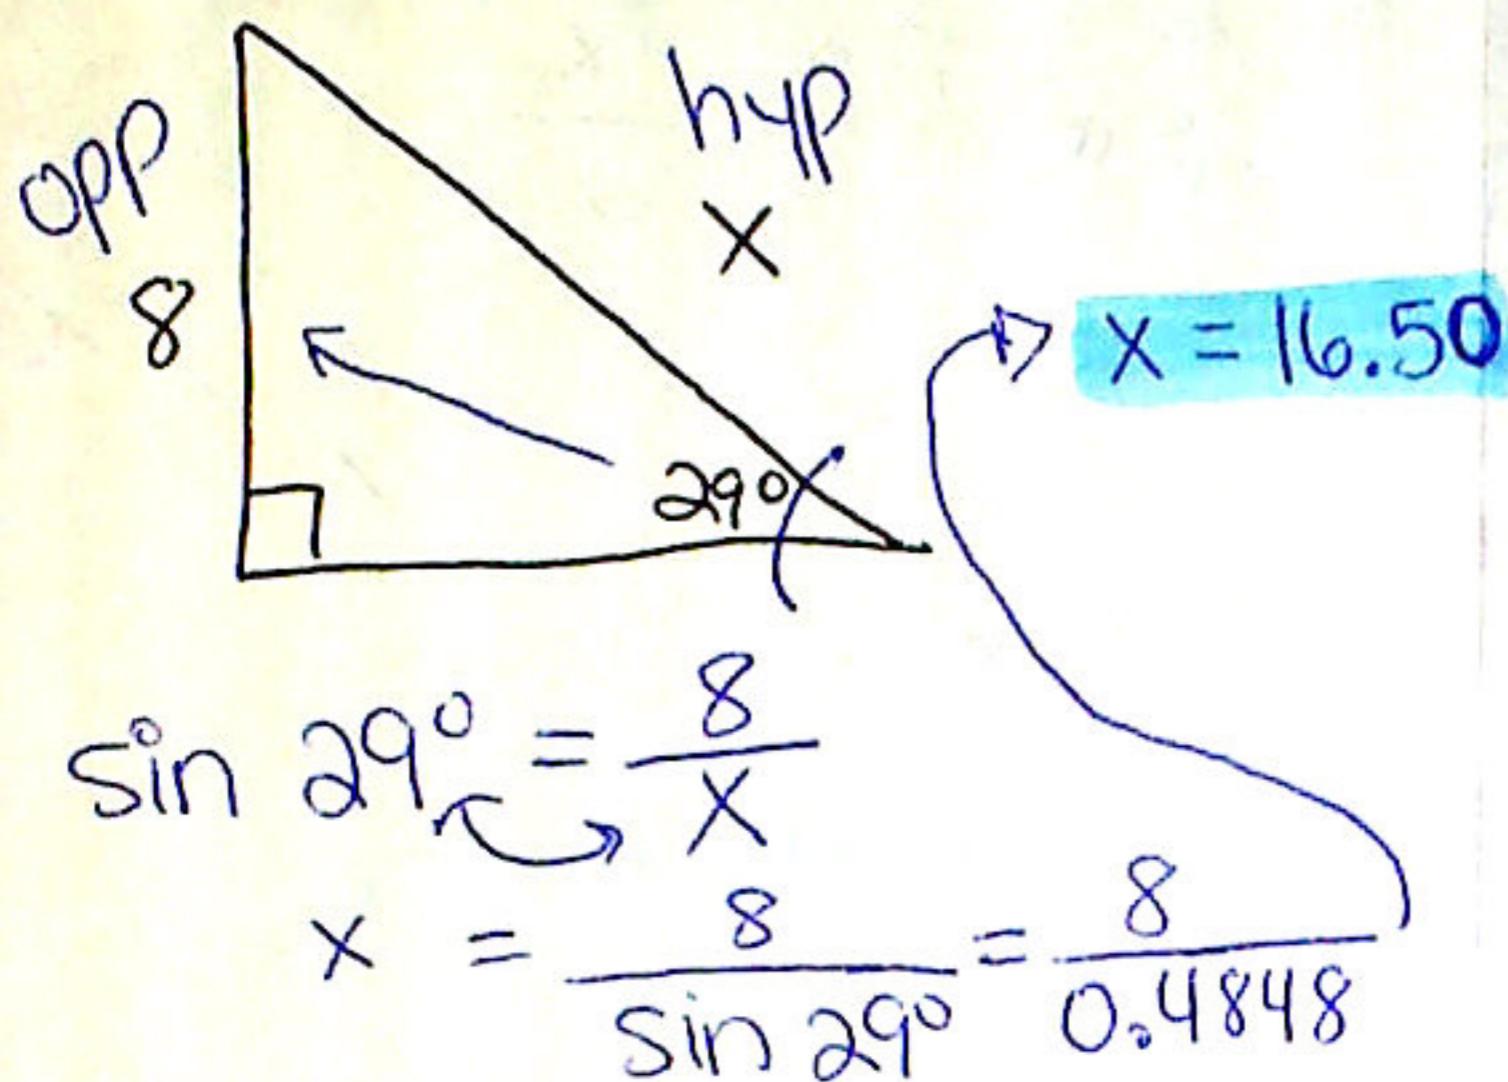 opp
8
hyp
x
29°
x = 16.50
sin 29° = 8/x
x = 8/sin 29° = 8/0.4848